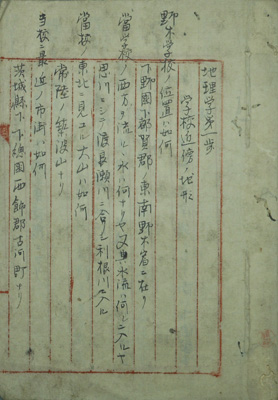 地理学第一歩
学校近傍ノ地形
野木学校ノ位置ハ如何
下野国下都賀郡ノ東南野木宿ニ在リ
当学校ノ西方ヲ流ルヽ水ハ何ナリヤ又其水流ハ何レニ入ルヤ
思川ニシテ渡良瀬川ニ合シ利根川ニ入ル
当校ノ東北ニ見ユル大山ハ如何
常陸ノ筑波山ナリ
当校ニ最近ノ市街ハ如何
茨城縣下下総国西葛飾郡古河町ナリ